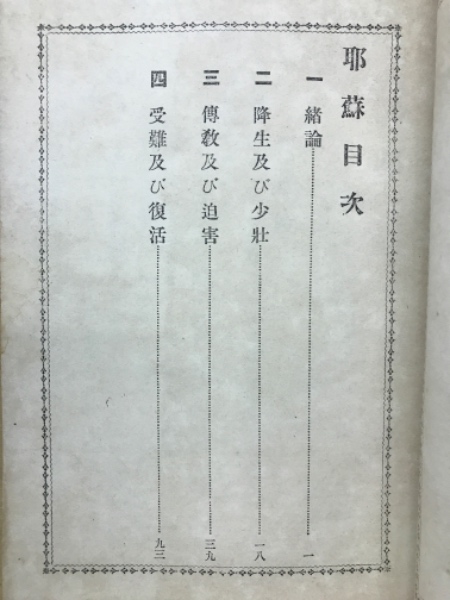 耶蘇目次
一 緒論………一
二 降生及び少壯………一八
三 傳教及び迫害………三九
四 受難及び復活………九三